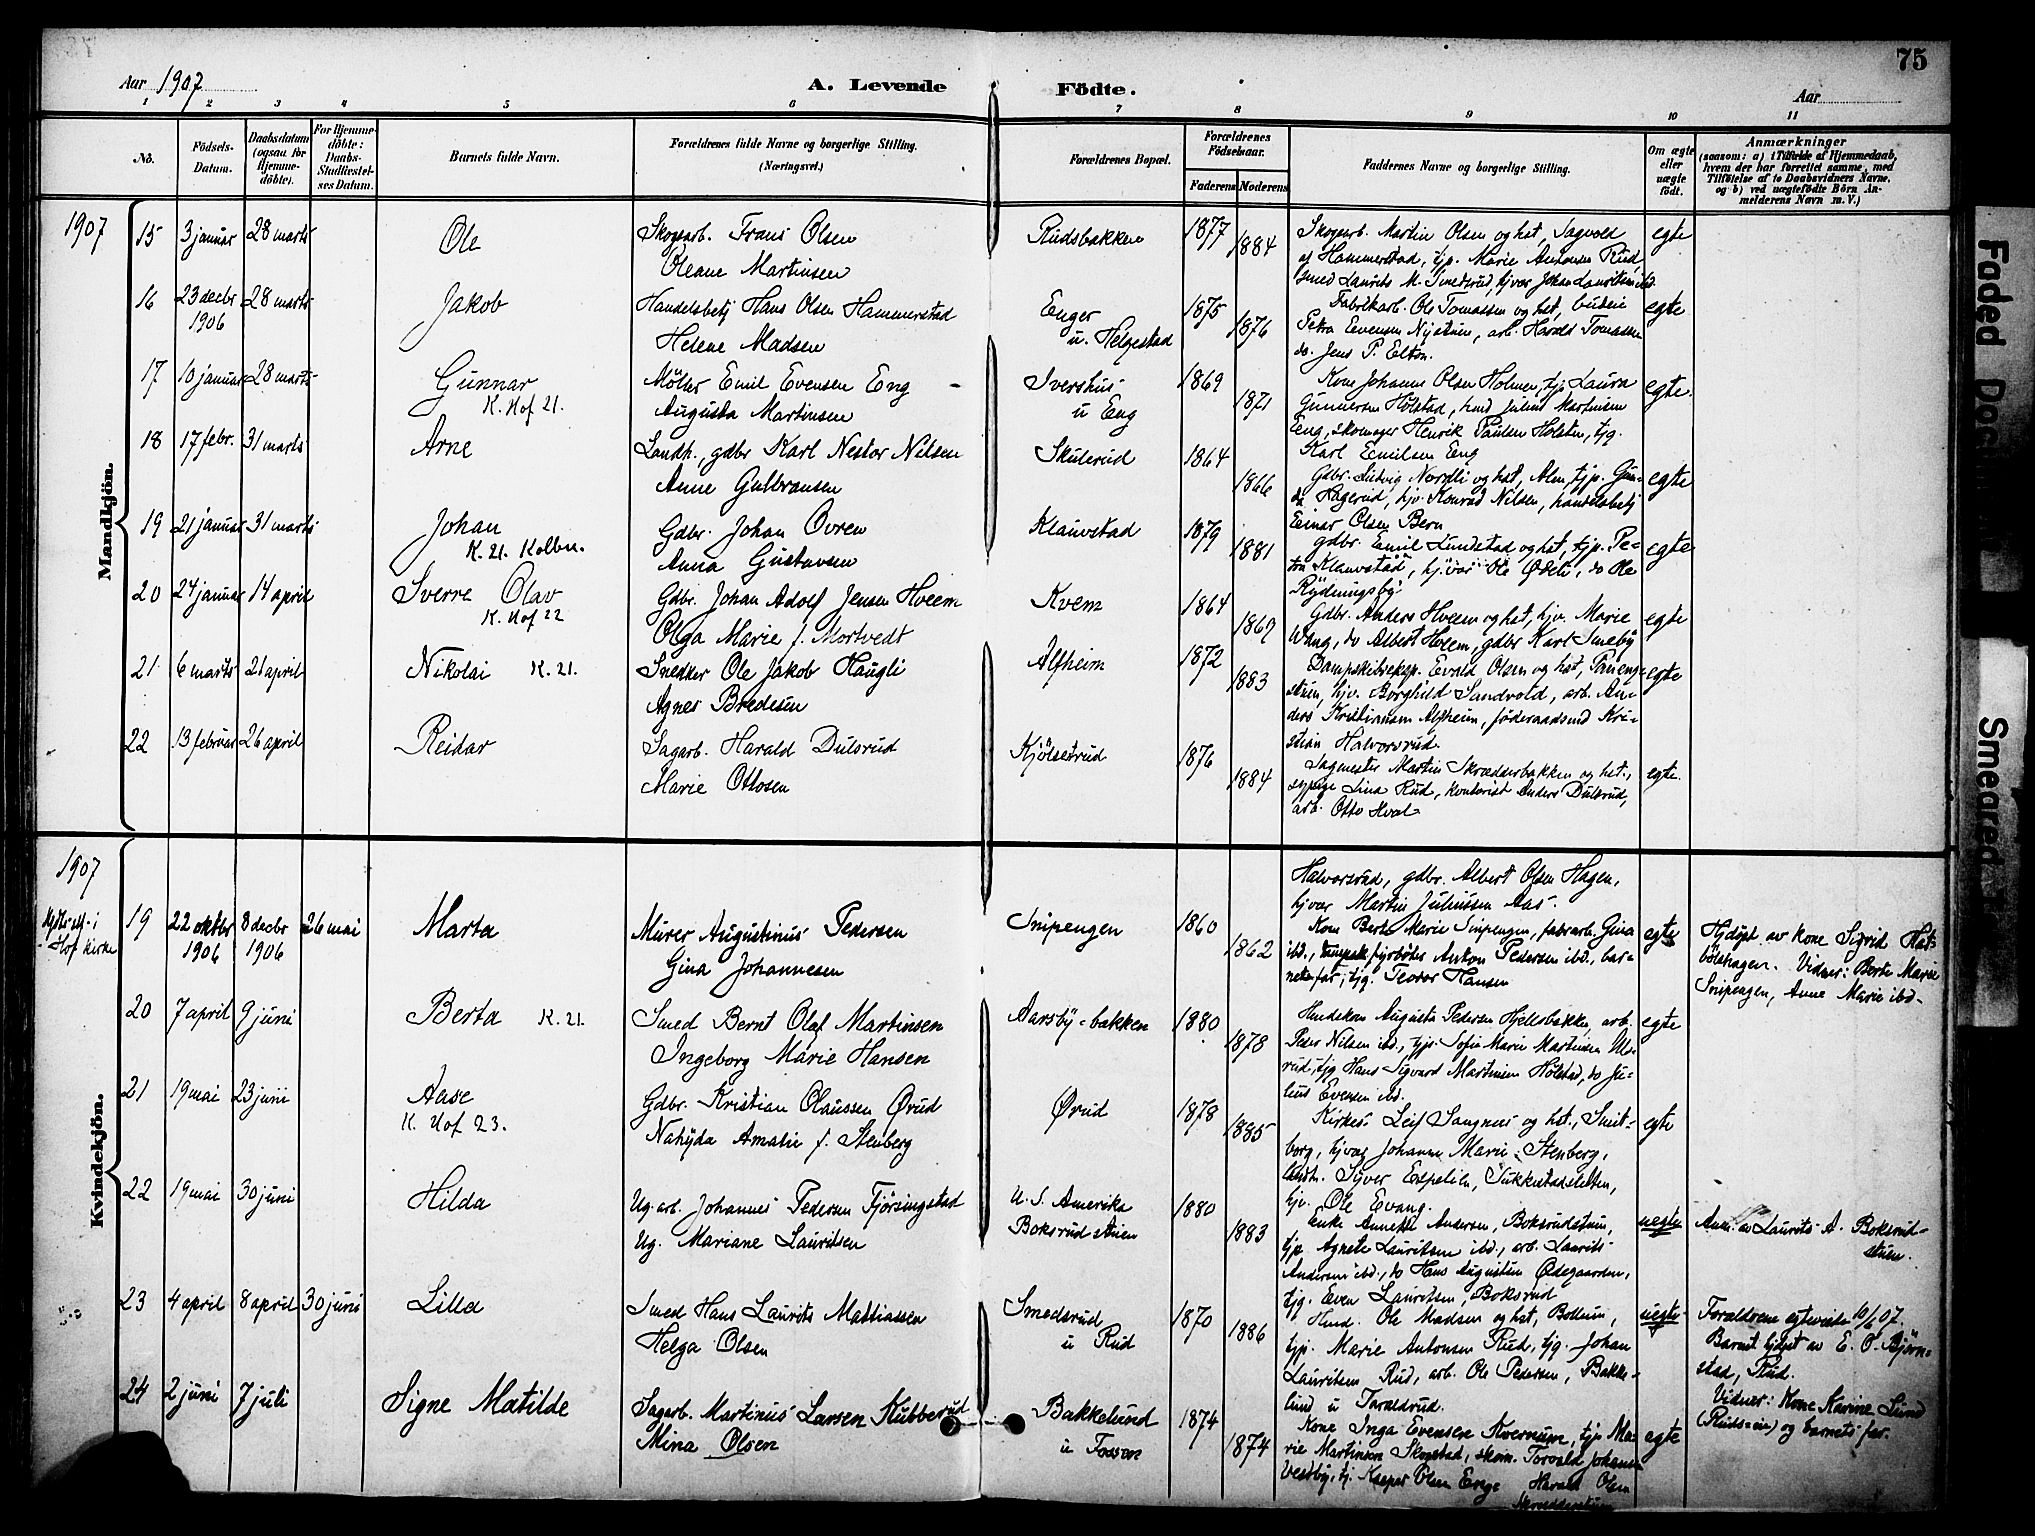 75
Aar 1907
A. Levende Födte.
Aar
1 2 3 4 5 6 7 8 9 10 11
No.
Födsels-Datum.
Daabsdatum (ogsaa for Hjemme-döbte).
For Hjemme-döbte: Daabs-Stadfæstel-ses Datum.
Barnets fulde Navn.
Forældrenes fulde Navne og borgerlige Stilling.
(Næringsvei.)
Forældrenes Bopæl.
Forældrenes Födselsaar.
Faderens Moderens
Faddernes Navne og borgerlige Stilling.
Om ægte eller uægte födt.
Anmærkninger
(saasom: a) i Tilfælde af Hjemmedaab,
hvem der har forrettet samme, med
Tilföielse af to Daabsvidners Navne,
og b) ved uægtefödte Börn An-
melderens Navn m. V.)
Mandkjön.
1907
15 3 januar 28 marts Ole
Skogsarb. Frans Olsen
Oleane Martinsen
Rudsbakken 1877 1884
Skogsarb. Martin Olsen og hst, Sagvold
af Hammerstad, tjp. Marie Antonsen Rud,
smed Laurits M. Smedsrud, hjvær Johan Lauritsen ibd.
egte
16 23 decbr 1906 28 marts Jakob
Handelsbetj Hans Olsen Hammerstad
Helene Madsen
Enger
u. Helgestad 1875 1876
Fabrikarb. Ole Tomassen og hst, budeie
Petra Evensen Nystuen, arb. Harald Tomassen
do. Jens P. Elton.
egte
17 10 januar 28 marts Gunnar
K. Hof 21.
Møller Emil Evensen Eng
Augusta Martinsen
Ivershus
u Eng 1869 1871
Kone Johanne Olsen Holmen, tjp Laura
Gunnersen Holstad, hmd Julius Martinsen
Eng, skomager Henrik Paulsen Holsten, tjg.
Karl Emilsen Eng
egte
18 17 febr. 31 marts Arne
Landh., gdbr Karl Nestor Nilsen
Anne Gulbransen
Skulerud 1864 1866
Gdbr. Ludvig Nordli og hst, Alm, tjp. Gun-
da Hagerud, hjv. Konrad Nilsen, handelsbetj
Einar Olsen Bern
egte
19 21 januar 31 marts Johan
K. 21. Kolbu.
Gdbr. Johan Øvren
Anna Gustavsen
Klauvstad 1879 1881
gdbr. Emil Lundstad og hst, tjp. Pe-
tra Klauvstad, hj.vær Ole Ødeli, do Ole
Rydningsby
egte
20 24 januar 14 april Sverre Olav
K. Hof 22
Gdbr. Johan Adolf Jensen Hveem
Olga Marie f. Mortvedt
Kvem 1864 1869
Gdbr. Anders Hveem og hst, hjv. Marie
Wang, do Albert Hveem, gdbr Karl Smeby
egte
21 6 marts 21 april Nikolai K. 21.
Snedker Ole Jakob Haugli
Agnes Bredesen
Alfheim 1872 1883
Dampskibseksp. Evald Olsen og hst, Paneng-
stuen, hjv. Borghild Sandvold, arb. An-
ders Kristiansen Alfheim, föderaadsmd Kri-
stian Halvorsrud
egte
22 13 februar 26 april Reidar
Sagarb. Harald Dulsrud
Marie Ottosen
Kjölsetrud 1876 1884
Sagmester Martin Skrædderbakken og hst.,
sypige Lina Rud, kontorist Anders Dulsrud,
arb. Otto Hval
egte.
Kvindekjön.
1907
Hof kirke
Halvorsrud, gdbr. Albert Olsen Hagen,
hjvær Martin Juliussen Aas.
19 22 oktbr 1906 8 decbr 1906 26 mai Marta
Murer Augustinus Pedersen
Gina Johannesen
Snipengen 1860 1862
Kone Berte Marie Snipengen, fabrarb. Gina
ibd., fyrböter Anton Pedersen ibd., bar-
nets far, tjg. Teodor Hansen
egte
Hjdöpt av kone Sigrid Hat-
bölshagen. Vidner: Berte Marie
Snipengen, Anne Marie ibd.
20 7 april 9 juni Berta K. 21.
Smed Bernt Olaf Martinsen
Ingeborg Marie Hansen
Aarsby-bakken 1880 1878
Husmdskone Augusta Pedersen Hjellsbakken, arb.
Peder Nilsen ibd., tjp. Sofie Marie Martinsen
rud, tjg Hans Sigvard Martinsen Holstad, do Ju-
lius Evensen ibd.
egte
21 19 mai 23 juni Aase
K. Hof 23.
Gdbr. Kristian Olaussen Ørud
Nahyda Amalie f. Stenberg
Ørud 1878 1885
Kirkes. Leif Sangnes og hst., Snit-
borg, hjvær Johanne Marie Stenberg,
landh. Syver Espelien, Sukkestadsletten,
hjv. Ole Evang.
egte
22 19 mai 30 juni Hilda
Ug. arb. Johannes Pedersen Fjørsingstad
Ug. Mariane Lauritsen
U. S. Amerika
Boksrudstuen 1880 1883
Enke Annette Andersen, Boksrudstuen,
tjp Agnete Lauritsen ibd., arb. Laurits
Andersen ibd., do Hans Augustin Ødegaarden,
tjg. Even Lauritsen, Boksrud
uegte
Anm. av Laurits A. Boksrud-
stuen.
23 4 april 8 april 30 juni Lilla
Smed Hans Laurits Mattiassen
Helga Olsen
Smedsrud
u Rud 1870 1886
Husmd. Ole Madsen og hst, Bothun,
tjp. Marie Antonsen Rud, tjg. Johan
Lauritsen Rud, arb. Ole Pedersen, Bakke-
lund u Taraldrud.
uegte
Foraldrene egteviede 10/6 07.
Barnet hjdöpt av E. O. Björn-
stad, Rud.
Vidner: Kone Karine Lund
(Rudseie) og barnets far.
24 2 juni 7 juli Signe Matilde
Sagarb. Martinus Larsen Stubberud
Mina Olsen
Bakkelund
u Fossen 1874 1874
Kone Inga Evensen Kvernum, tjp Ma-
rie Martinsen Skogstad, skom. Torvald Johansen
Vestby, tj. Kasper Olsen Enge Harald Olsen
egte
Faded Doc
Smeared